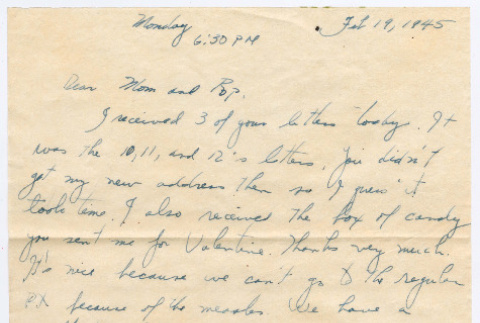 Monday Feb 19, 1945
6:30 PM
Dear Mom and Pop,
I received 3 of your letters today. It
was the 10, 11, and 12's letters. You didn't
get my new address then so I guess it
took time. I also received the box of candy
you sent me for Valentine. Thanks very much.
It's nice because we can't go to the regular
P.X because of the measles. We have a